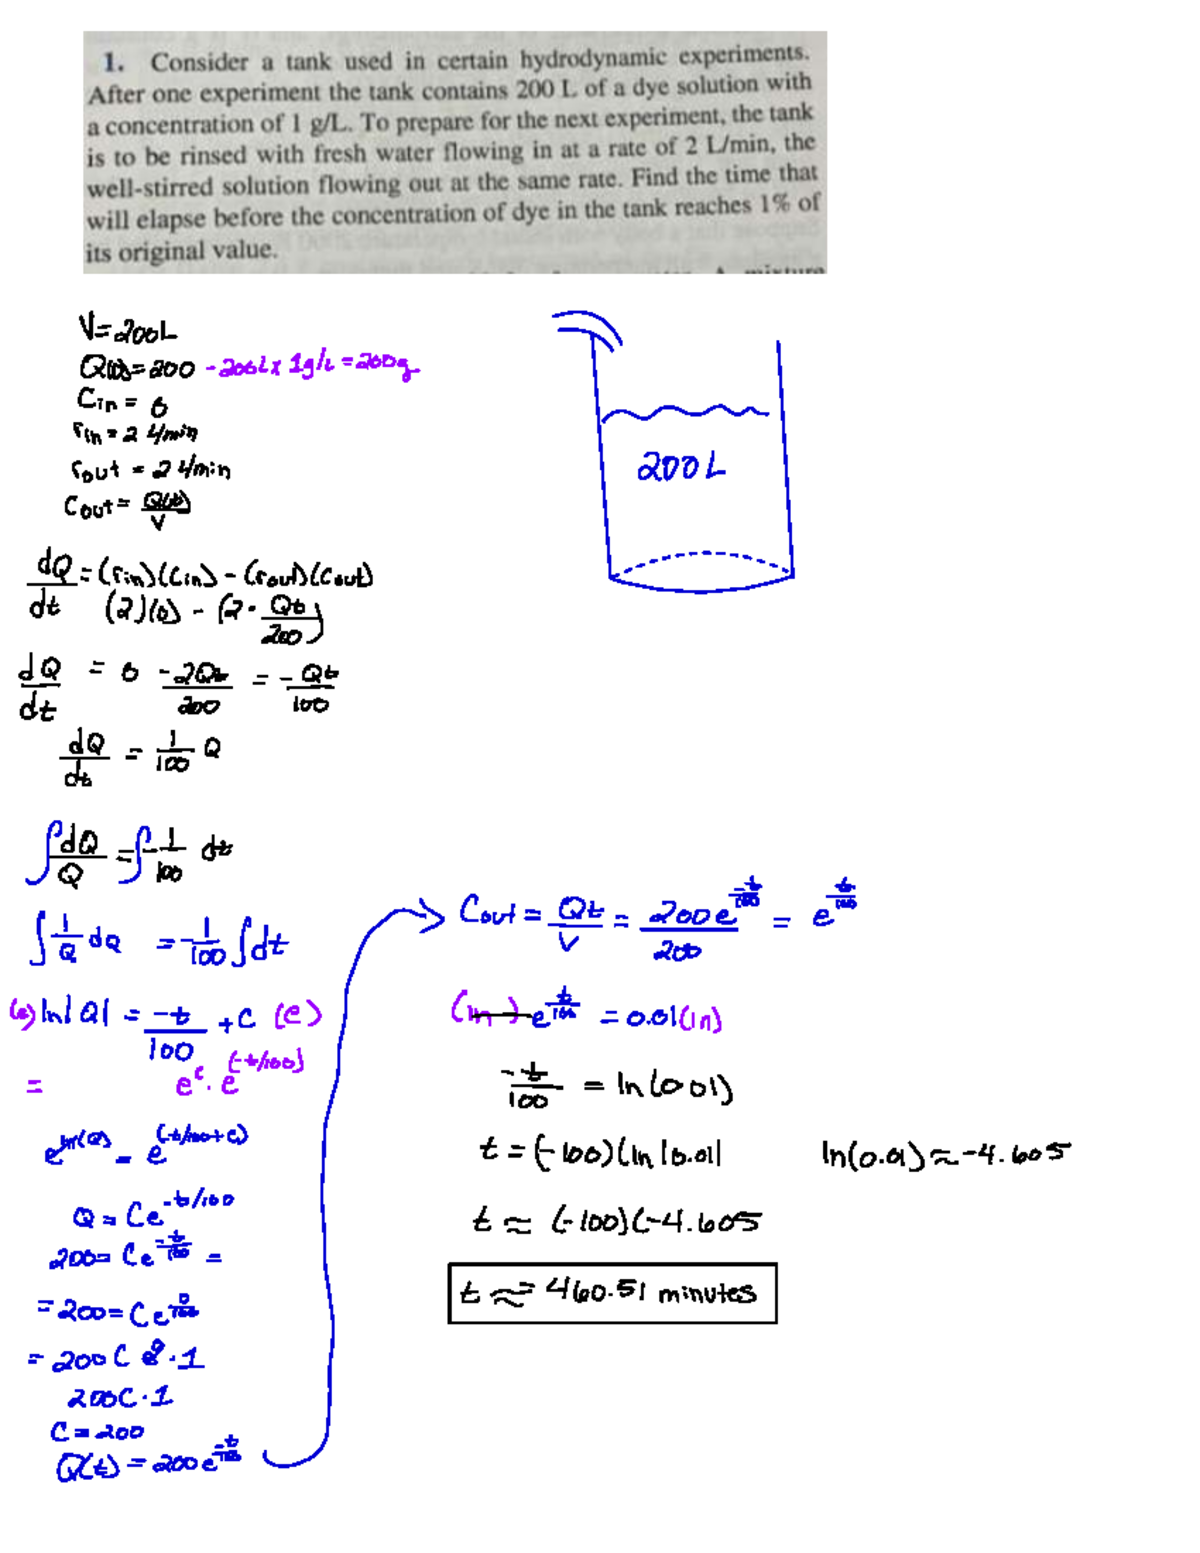 1. Consider a tank used in certain hydrodynamic experiments.
After one experiment the tank contains 200 L of a dye solution with
a concentration of 1 g/L. To prepare for the next experiment, the tank
is to be rinsed with fresh water flowing in at a rate of 2 L/min, the
well-stirred solution flowing out at the same rate. Find the time that
will elapse before the concentration of dye in the tank reaches 1% of
its original value.
V=200L
Q(0)=200 - 200L x 1g/L = 200g
Cin = 0
rin = 2 L/min
rout = 2 L/min
Cout = Q(t)/V
200L
dQ/dt = (rin)(Cin) - (rout)(Cout)
(2)(0) - (2 · Qt/200)
dQ/dt = 0 - 2Qt/200 = - Qt/100
dQ/dt = 1/100 Q
∫dQ/Q = ∫-1/100 dt
∫ 1/Q dQ = -1/100 ∫dt
(e) ln|Q| = -t/100 + C (e)
= e^c · e^(-t/100)
e^ln(Q) = e^(-t/100+c)
Q = Ce^-t/100
200 = Ce^-t/100 =
= 200 = Ce^0/100
= 200 C e^0 · 1
200C · 1
C = 200
Q(t) = 200e^-t/100
Cout = Qt/V = 200e^-t/100 / 200 = e^-t/100
(ln) e^-t/100 = 0.01(ln)
-t/100 = ln(0.01)
t = (-100)(ln|0.01|
ln(0.01) ≈ -4.605
t ≈ (-100)(-4.605
t ≈= 460.51 minutes